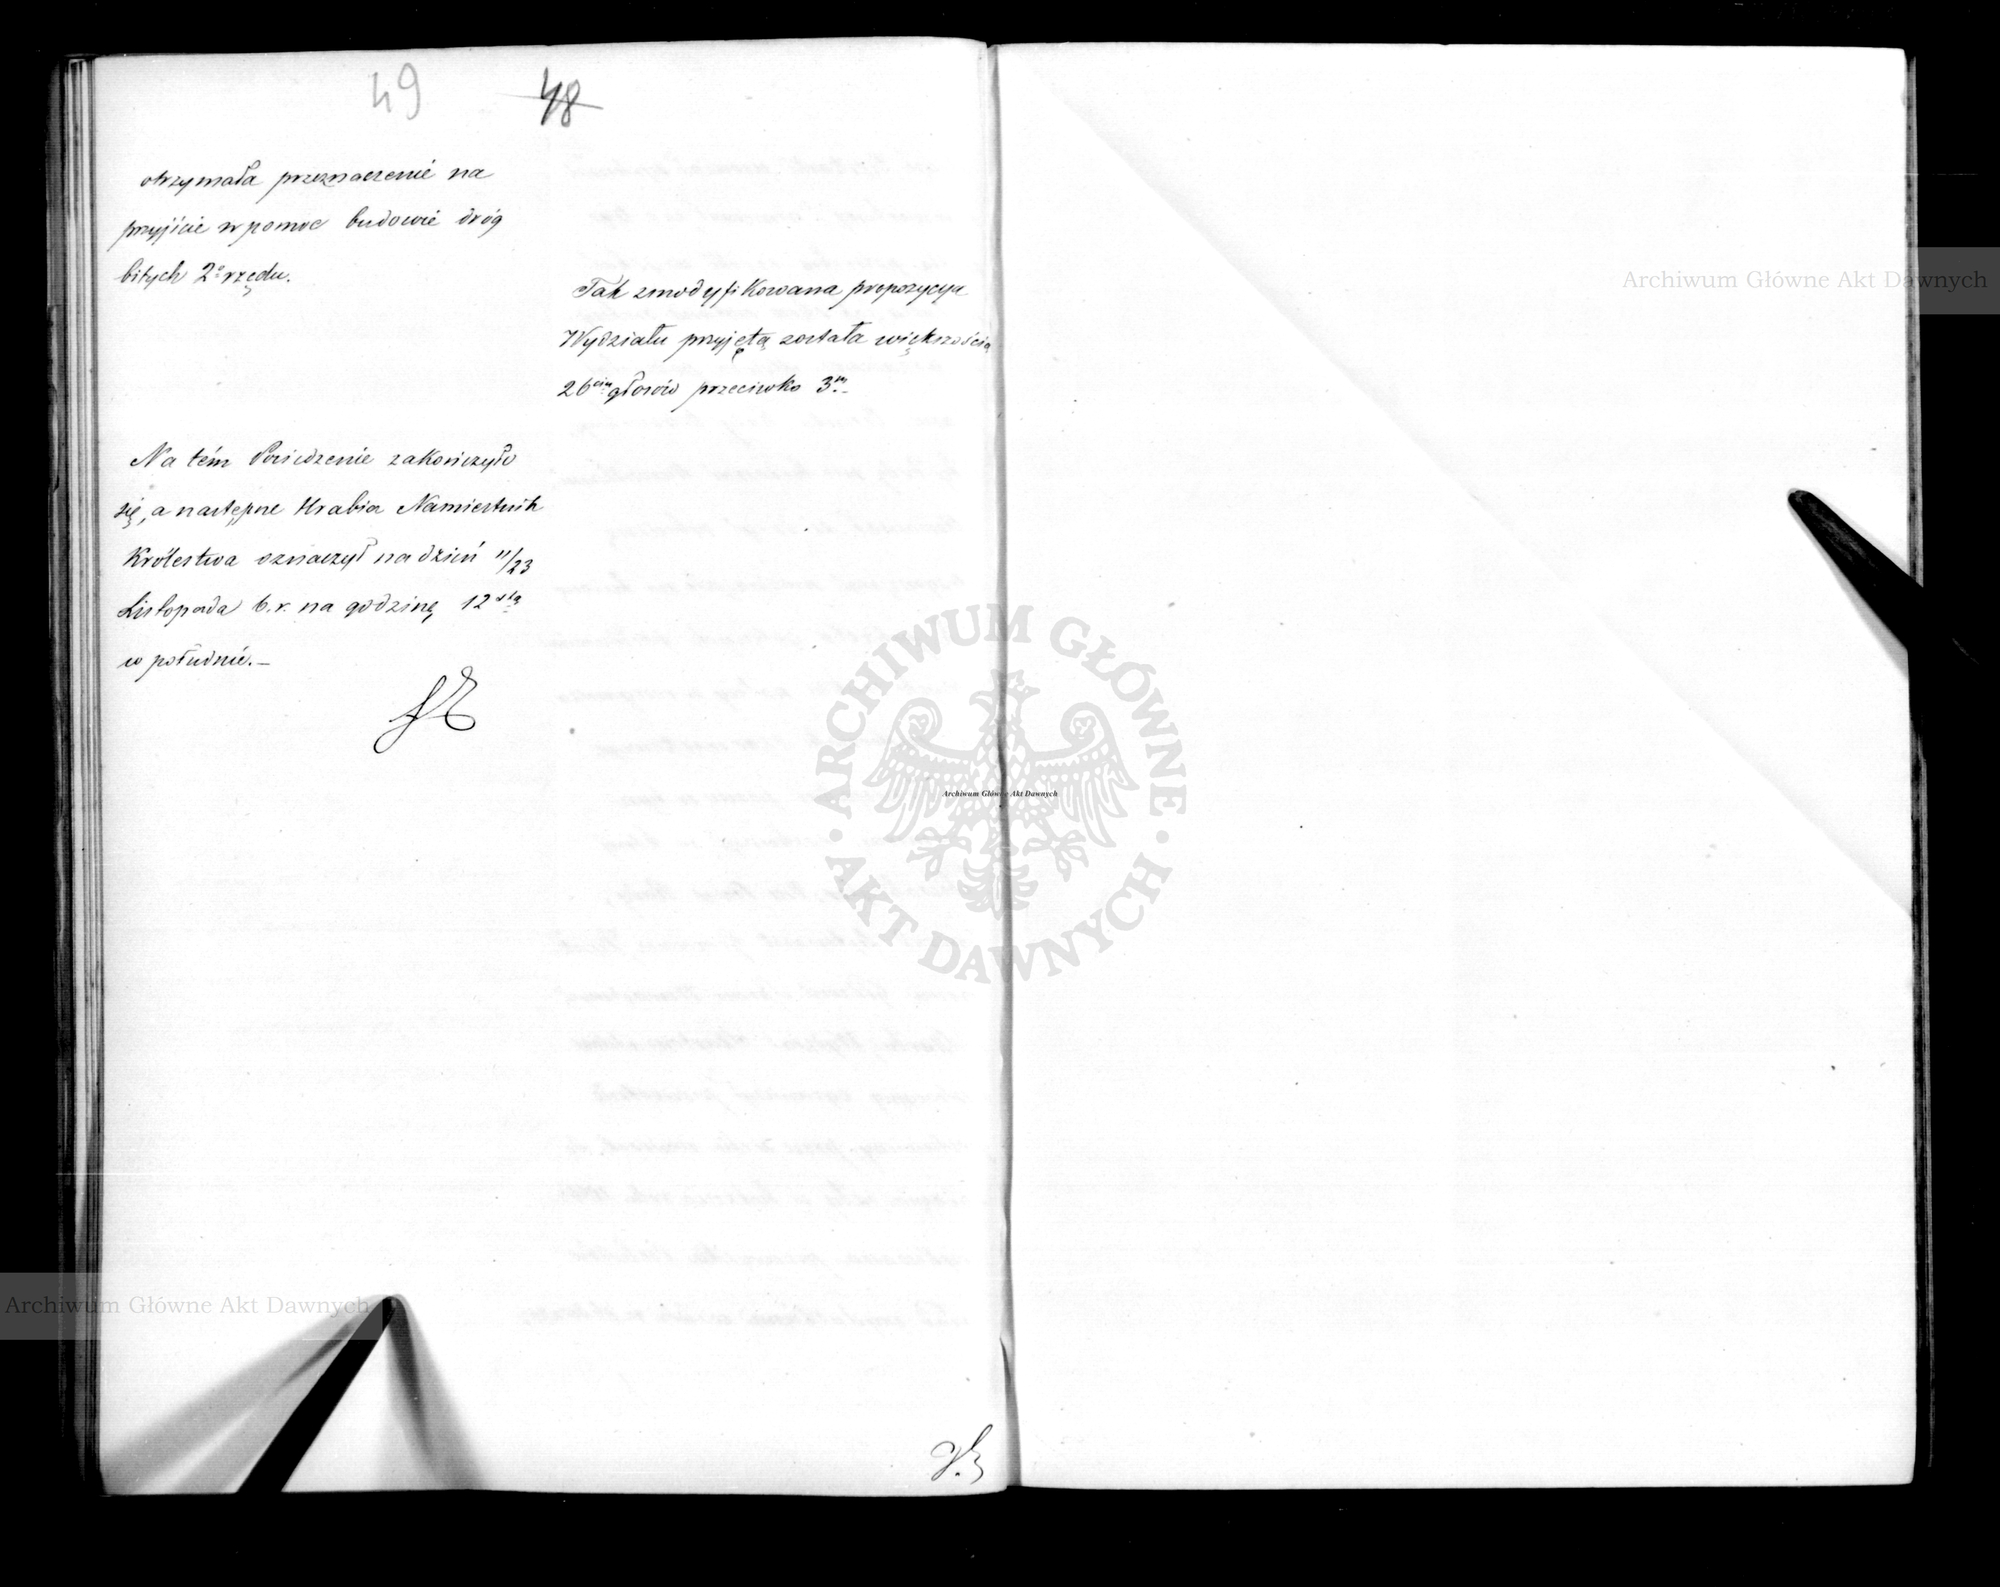 49 48
otrzymała przeznaczenie na
przyjście w pomoc budowie dróg
bitych 2º rzędu.
Tak zmodyfikowana propozycya
Wydziału przyjętą została większością
26ciu głosów przeciwko 3m.
Na tém Posiedzenie zakończyło
się, a następne Hrabia Namiestnik
Królestwa oznaczył na dzień 11/23
Listopada b. r. na godzinę 12stą
w południe.
Archiwum Główne Akt Dawnych
ARCHIWUM GŁÓWNE
AKT DAWNYCH
Archiwum Główne Akt Dawnych
Archiwum Główne Akt Dawnych